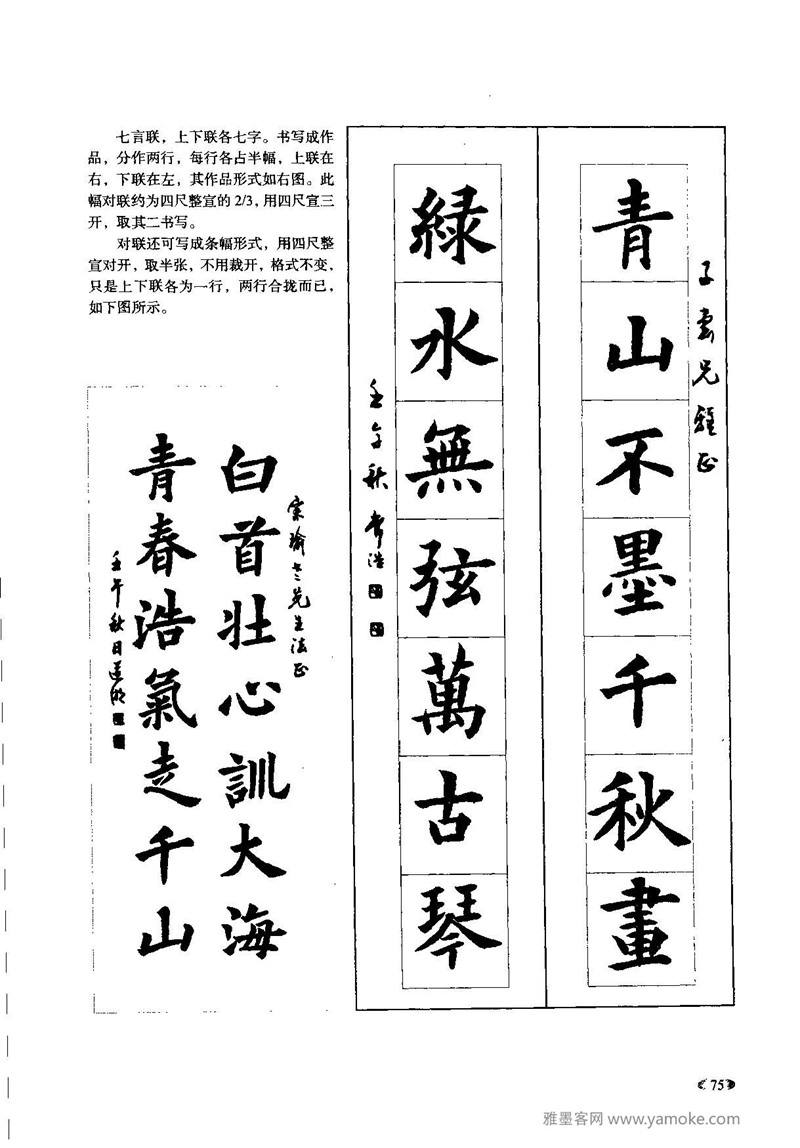 七言联，上下联各七字。书写成作
品，分作两行，每行各占半幅，上联在
右，下联在左，其作品形式如右图。此
幅对联约为四尺整宣的 2/3，用四尺宣三
开，取其二书写。
对联还可写成条幅形式，用四尺整
宣对开，取半张，不用裁开，格式不变，
只是上下联各为一行，两行合拢而已，
如下图所示。
子云兄雅正
青山不墨千秋畫
緑水無弦萬古琴
壬午秋 常浩
宗瑜老先生法正
白首壮心訓大海
青春浩氣走千山
壬午秋日
75
雅墨客网 www.yamoke.com